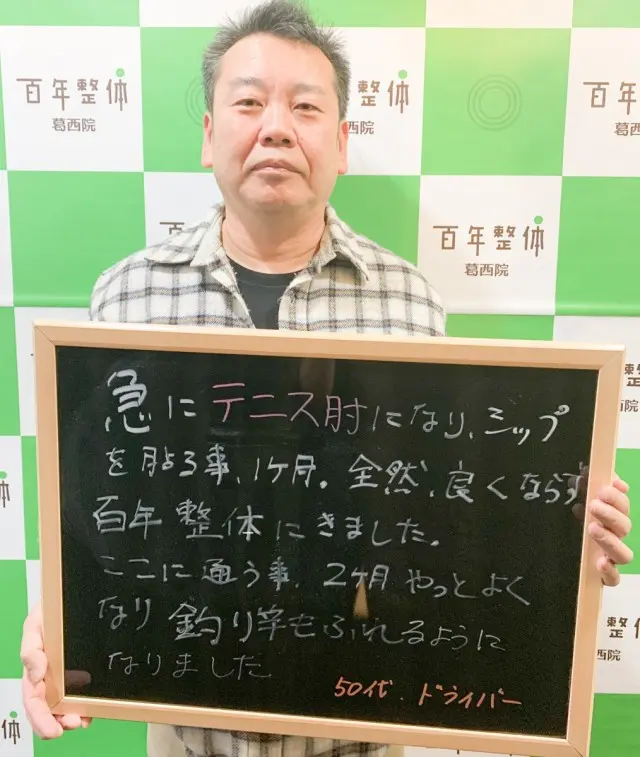 百年整体
葛西院
百年整体
葛西院
百年整体
葛西院
急にテニス肘になり、シップ
を貼る事、1ケ月。全然、良くならず
百年整体にきました。
ここに通う事、2ケ月やっとよく
なり釣り竿もふれるように
なりました
50代、ドライバー